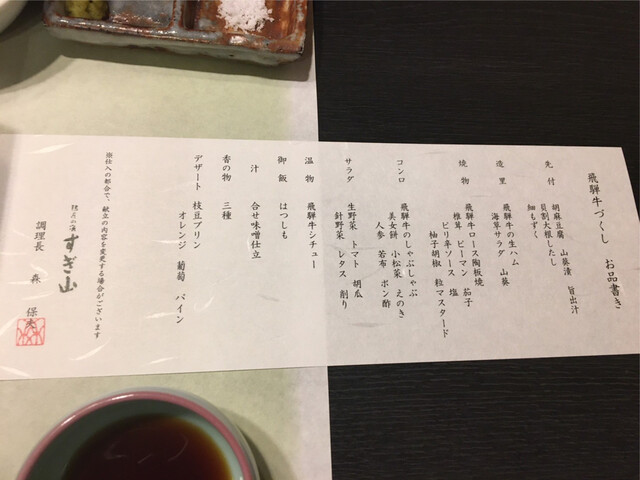 飛騨牛づくし お品書き
先付 胡麻豆腐 山葵漬 旨出汁
貝割大根したし
細もずく
造里 飛騨牛の生ハム
海草サラダ 山葵
焼物 飛騨牛ロース陶板焼
椎茸 ピーマン 茄子
ピリ辛ソース 塩
柚子胡椒 粒マスタード
コンロ 飛騨牛のしゃぶしゃぶ
美女餅 小松菜 えのき
人参 若布 ポン酢
サラダ 生野菜 トマト 胡瓜
針野菜 レタス 削り
温物 飛騨牛シチュー
御飯 はつしも
汁 合せ味噌仕立
香の物 三種
デザート 枝豆プリン
オレンジ 葡萄 パイン
※仕入の都合で、献立の内容を変更する場合がございます
すぎ山
調理長 森 保